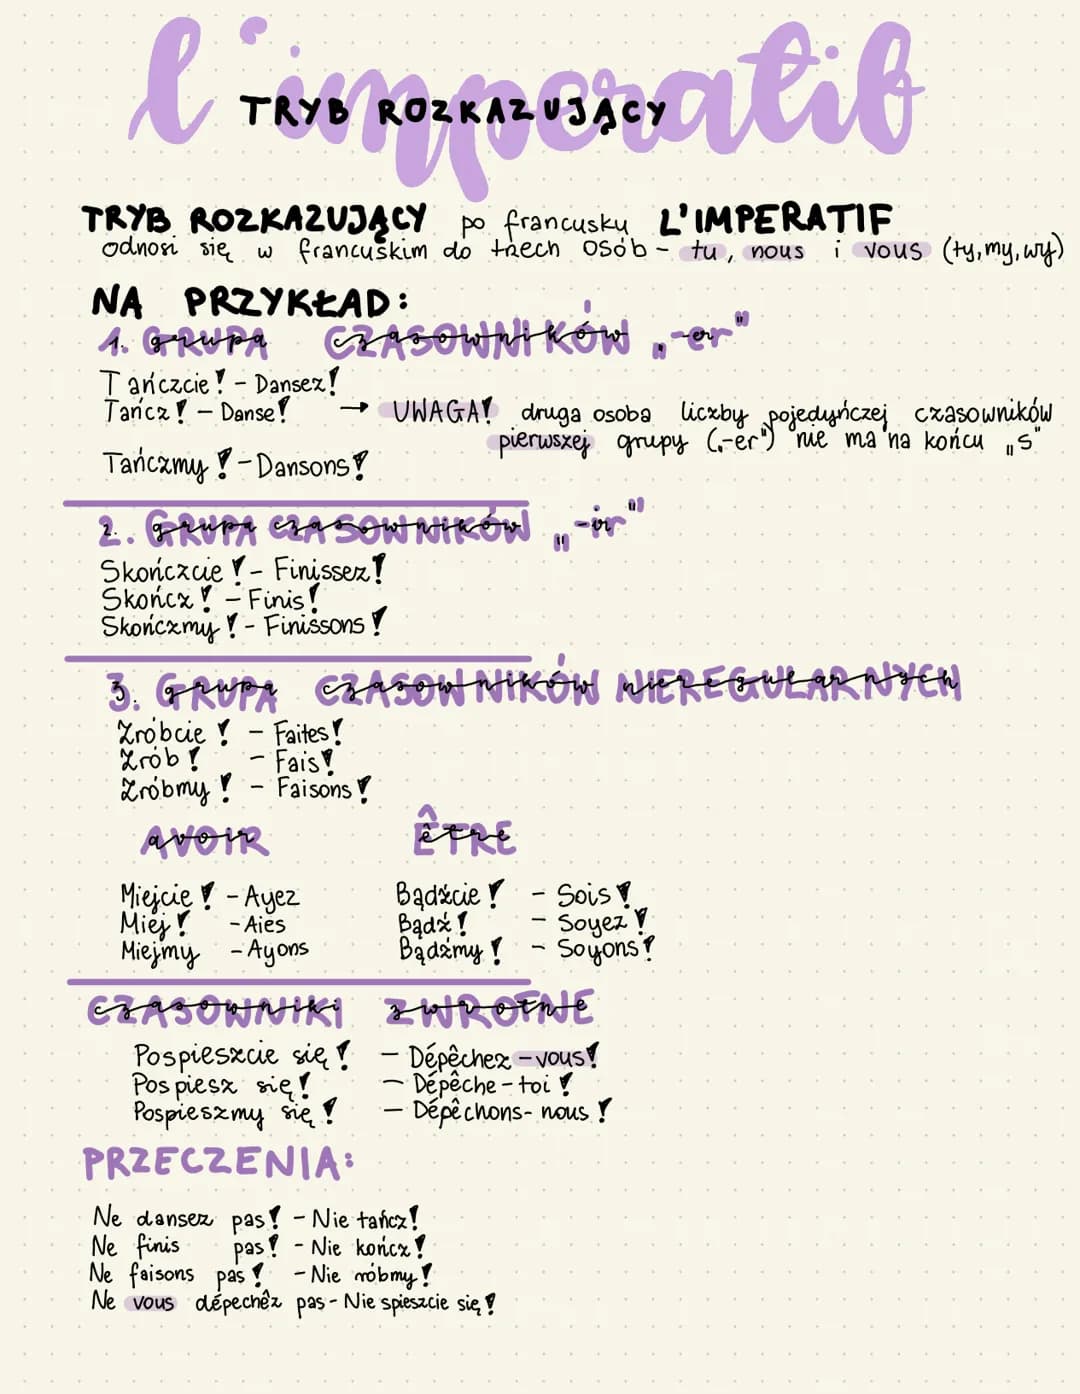 l'imperatif
TRYB ROZKAZUJĄCY
TRYB ROZKAZUJĄCY po francusku L'IMPERATIF
odnosi się w francuskim do trzech osób - tu, nous i vous (ty, my, wy)
NA PRZYKŁAD:
1. GRUPA CZASOWNIKÓW „-er"
Tańczcie! - Dansez!
Tańcz! - Danse! → UWAGA! druga osoba liczby pojedyńczej czasowników
pierwszej grupy („-er") nie ma na końcu „s"
Tańczmy! - Dansons!
2. GRUPA CZASOWNIKÓW „-ir"
Skończcie! - Finissez!
Skończ! - Finis!
Skończmy! - Finissons!
3. GRUPA CZASOWNIKÓW NIEREGULARNYCH
Zróbcie! - Faites!
Zrób! - Fais!
Zróbmy! - Faisons!
AVOIR ÊTRE
Miejcie! - Ayez Bądźcie! - Sois!
Miej! - Aies Bądź! - Soyez!
Miejmy - Ayons Bądźmy! - Soyons!
CZASOWNIKI ZWROTNE
Pospieszcie się! - Dépêchez-vous!
Pospiesz się! - Dépêche-toi!
Pospieszmy się! - Dépêchons-nous!
PRZECZENIA:
Ne dansez pas! - Nie tańcz!
Ne finis pas! - Nie kończ!
Ne faisons pas! - Nie róbmy!
Ne vous dépechêz pas - Nie spieszcie się!